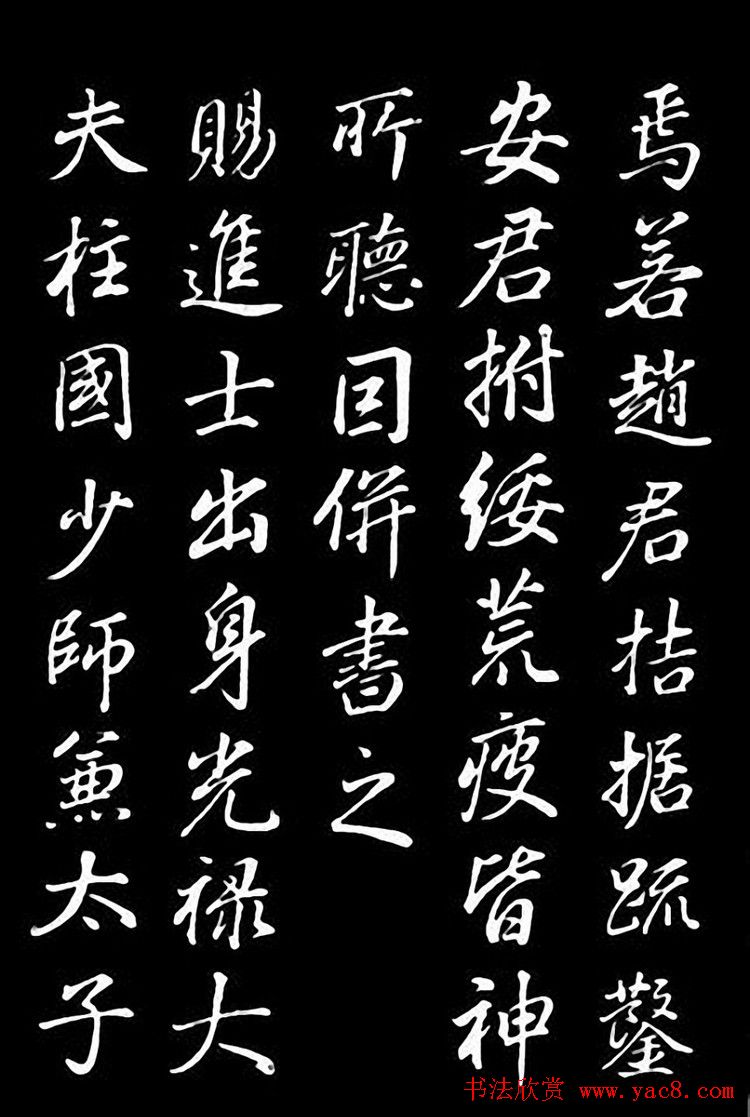 焉若趙君拮据疏鑿
安君拊綏荒疫皆神
所聽回併書之
賜進士出身光祿大
夫柱國少師兼太子
书法欣赏 www.yac8.com